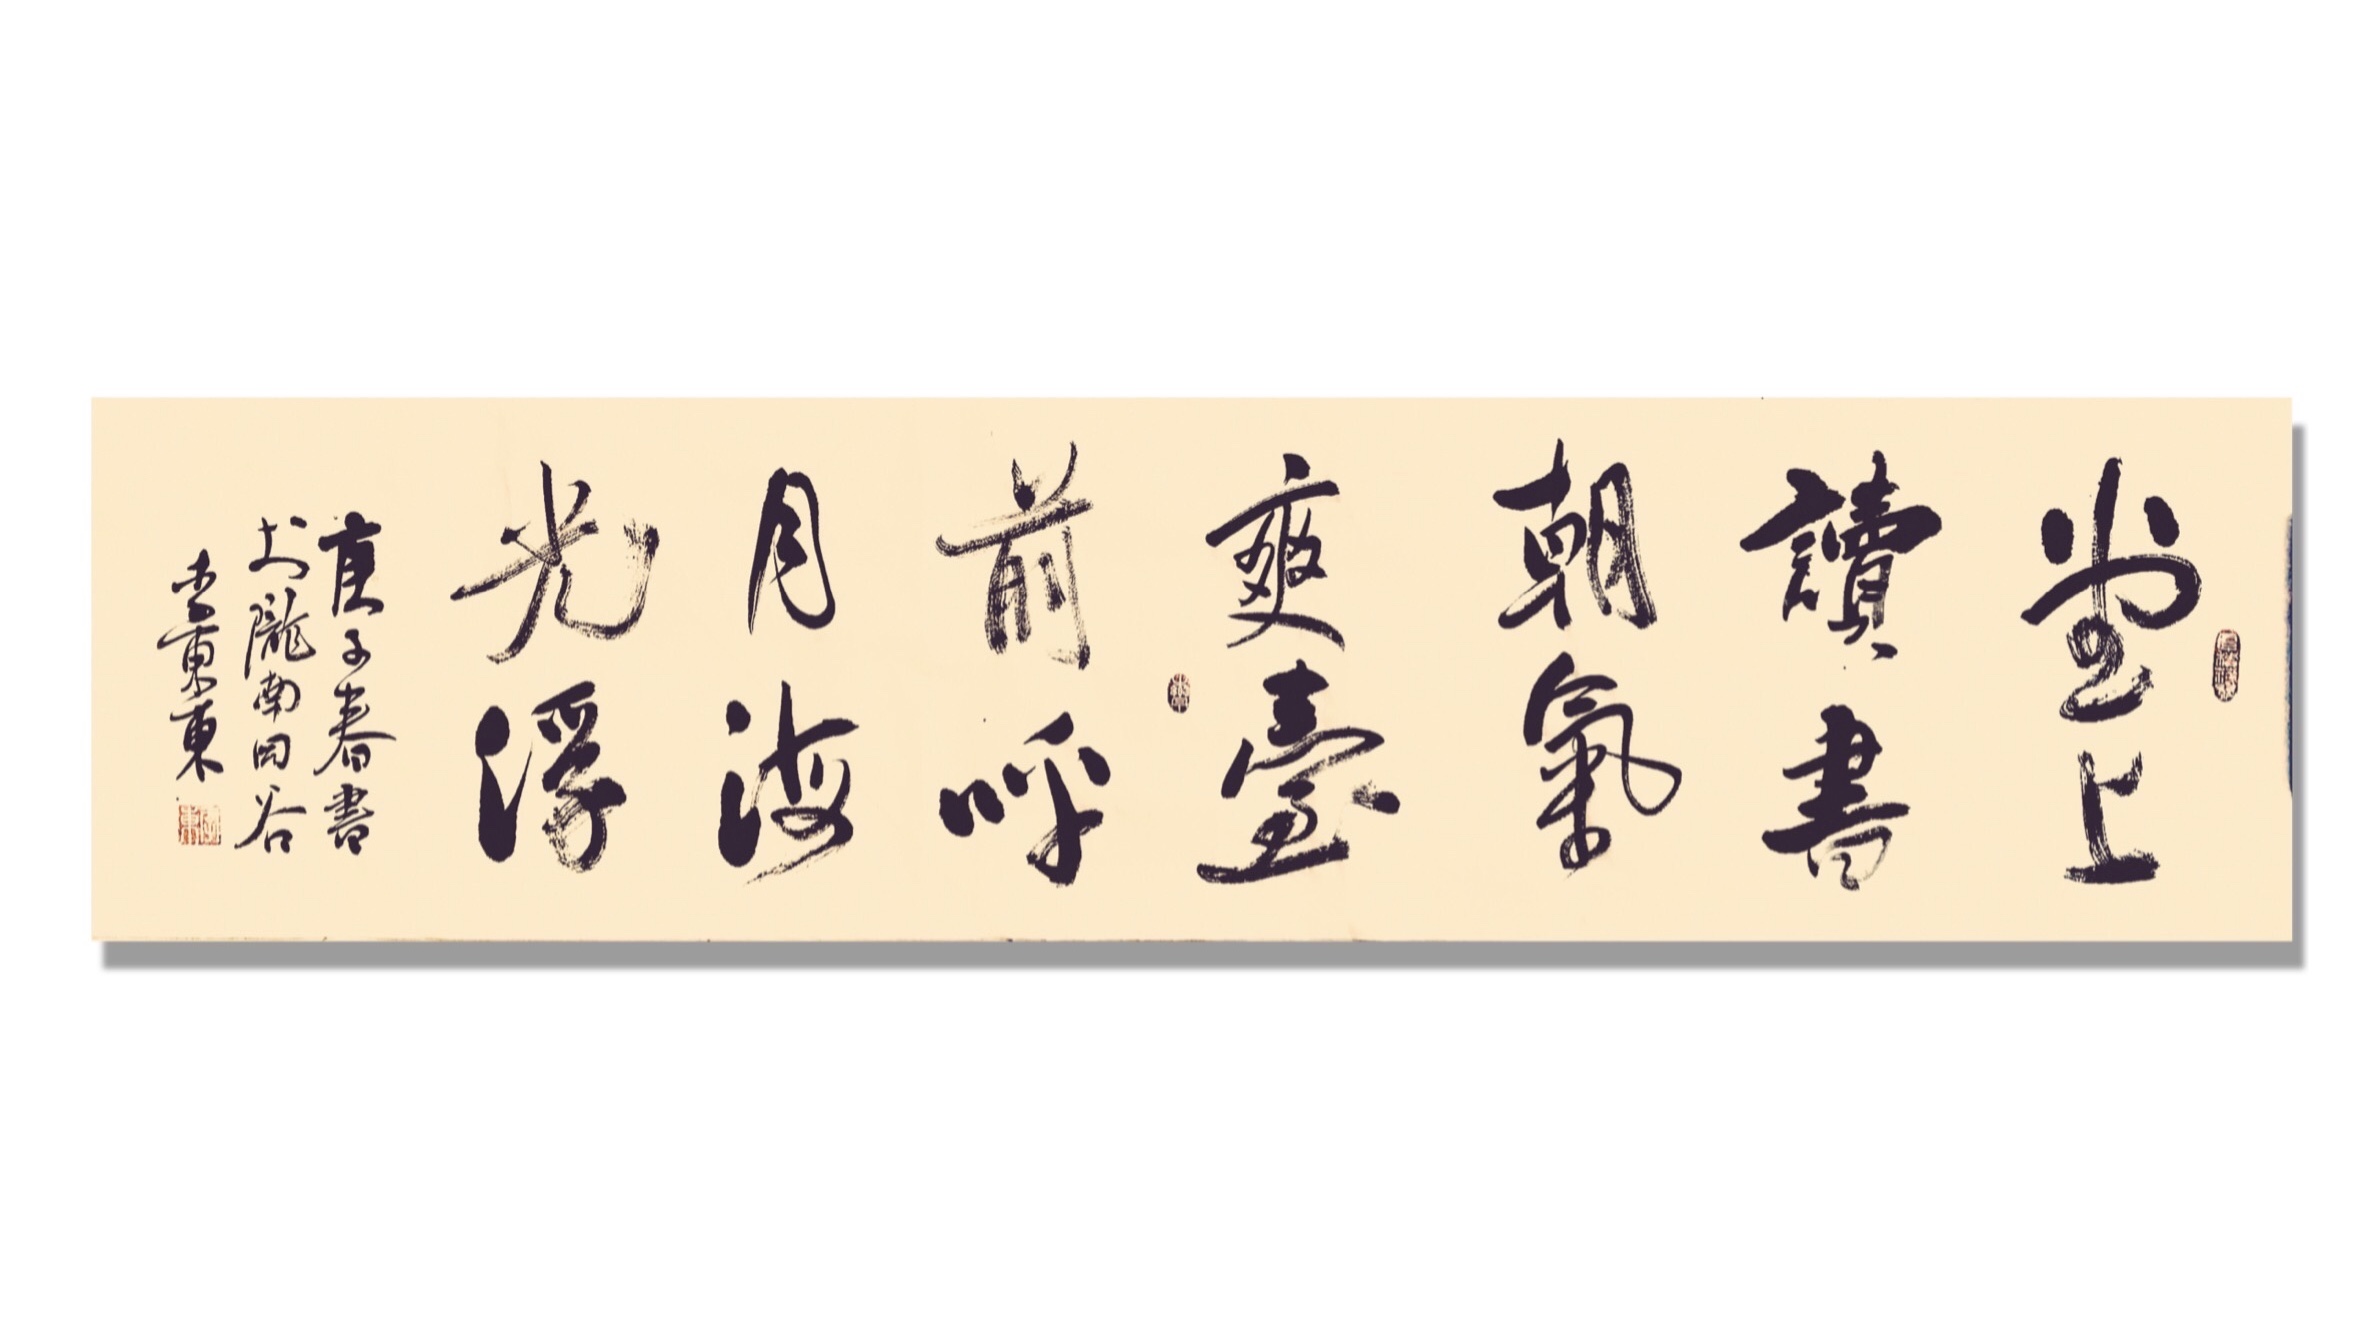 堂上
讀書
朝氣
爽臺
前呼
月海
光浮
庚子春書
於隴南同谷
東